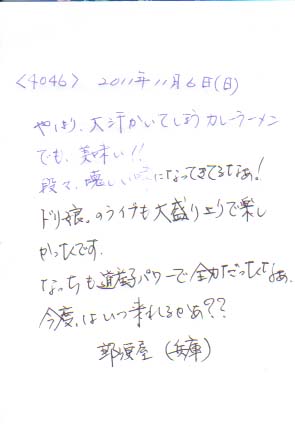 <4046> 2011年11月6日(日)
やはり、大汗かいてしまうカレーラーメン
でも、美味い!!
段々、懐しい味になってきてるなぁ!
ドリ娘。のライブも大盛り上りで楽し
かったです。
なっちも道産子パワーで全力だったなぁ。
今度はいつ来れるかなぁ??
那須屋(兵庫)